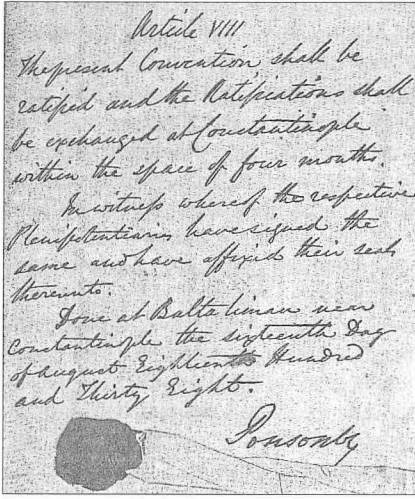 Article VIII
The present Convention shall be
ratified and the Ratifications shall
be exchanged at Constantinople
within the space of four months.
In witness whereof the respective
Plenipotentiaries have signed the
same and have affixed their seals
thereunto.
Done at Balta liman near
Constantinople the sixteenth Day
of August Eighteenth Hundred
and Thirty Eight.
Ponsonby